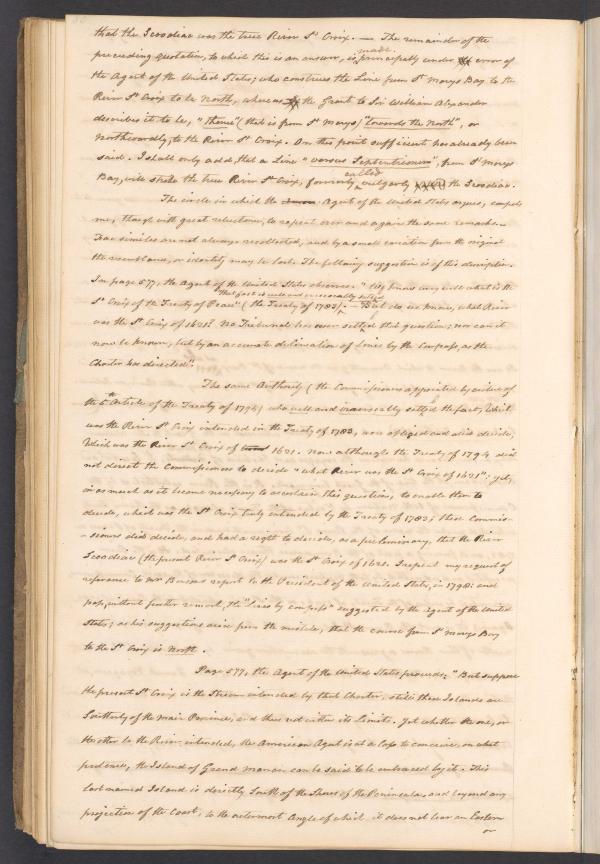 that the Scoodiac was the true River St Croix. — The remainder of the
preceeding quotation, to which this is an answer, is made principally under error of
the Agent of the United States; who construes the Line from St Marys Bay to the
River St Croix to be North, whereas the Grant to Sir William Alexander
describes it to be, "Thence" (that is from St Marys) "towards the North", or
Northwardly, to the River St Croix. On this point sufficient has already been
said. I shall only add, that a Line "versus Septentrionem", from St Marys
Bay, will strike the true River St Croix, formerly called vulgarly the Scoodiac.
The circle in which the Agent of the United States argues, compels
me, though with great reluctance, to repeat over and again the same remarks.
Fac similes are not always recollected, and by a small variation from the original
the resemblance, or identity may be lost. The following suggestion is of this description.
In page 577, the Agent of the United States observes: "We know very well what is the
St Croix of the Treaty of Peace" (the Treaty of 1783); That fact is well and irrevocably settled — "But do we know, what River
was the St Croix of 1621? No Tribunal has ever settled that question; nor can it
now be known, but by an accurate delineation of Lines by the Compass, as the
Charter has directed".
The same Authority (the Commissioners appointed by virtue of
the 5th Article of the Treaty of 1794) who well and irrevocably settled the fact, Which
was the River St Croix intended in the Treaty of 1783, were obliged and did decide,
Which was the River St Croix of 1621. Now although the Treaty of 1794 did
not direct the Commissioners to decide "what River was the St Croix of 1621": yet,
in as much as it became necessary to ascertain this question, to enable them to
decide, which was the St Croix truly intended by the Treaty of 1783; these Commis-
-sioners did decide, and had a right to decide, as a preliminary, that the River
Scoodiac (the present River St Croix) was the St Croix of 1621. I repeat my request of
reference to Mr Bensons report to the President of the United States, in 1798: and
pass, without further remark, the "Lines by compass" suggested by the Agent of the United
States; as his suggestions arise from the mistake, that the course from St Marys Bay
to the St Croix is North.
Page 577, the Agent of the United States proceeds: "But suppose
the present St Croix is the Stream intended by that Charter, still these Islands are
Southerly of the main Province, and thus not within its Limits. Yet whether the one, or
the other be the River intended, the American Agent is at a loss to conceive, on what
pretence, the Island of Grand Manan can be said to be embraced by it. This
last named Island is directly South of the Shores of the Peninsula, and beyond any
projection of the Coast, to the outermost Angle of which, it does not bear an Eastern
or